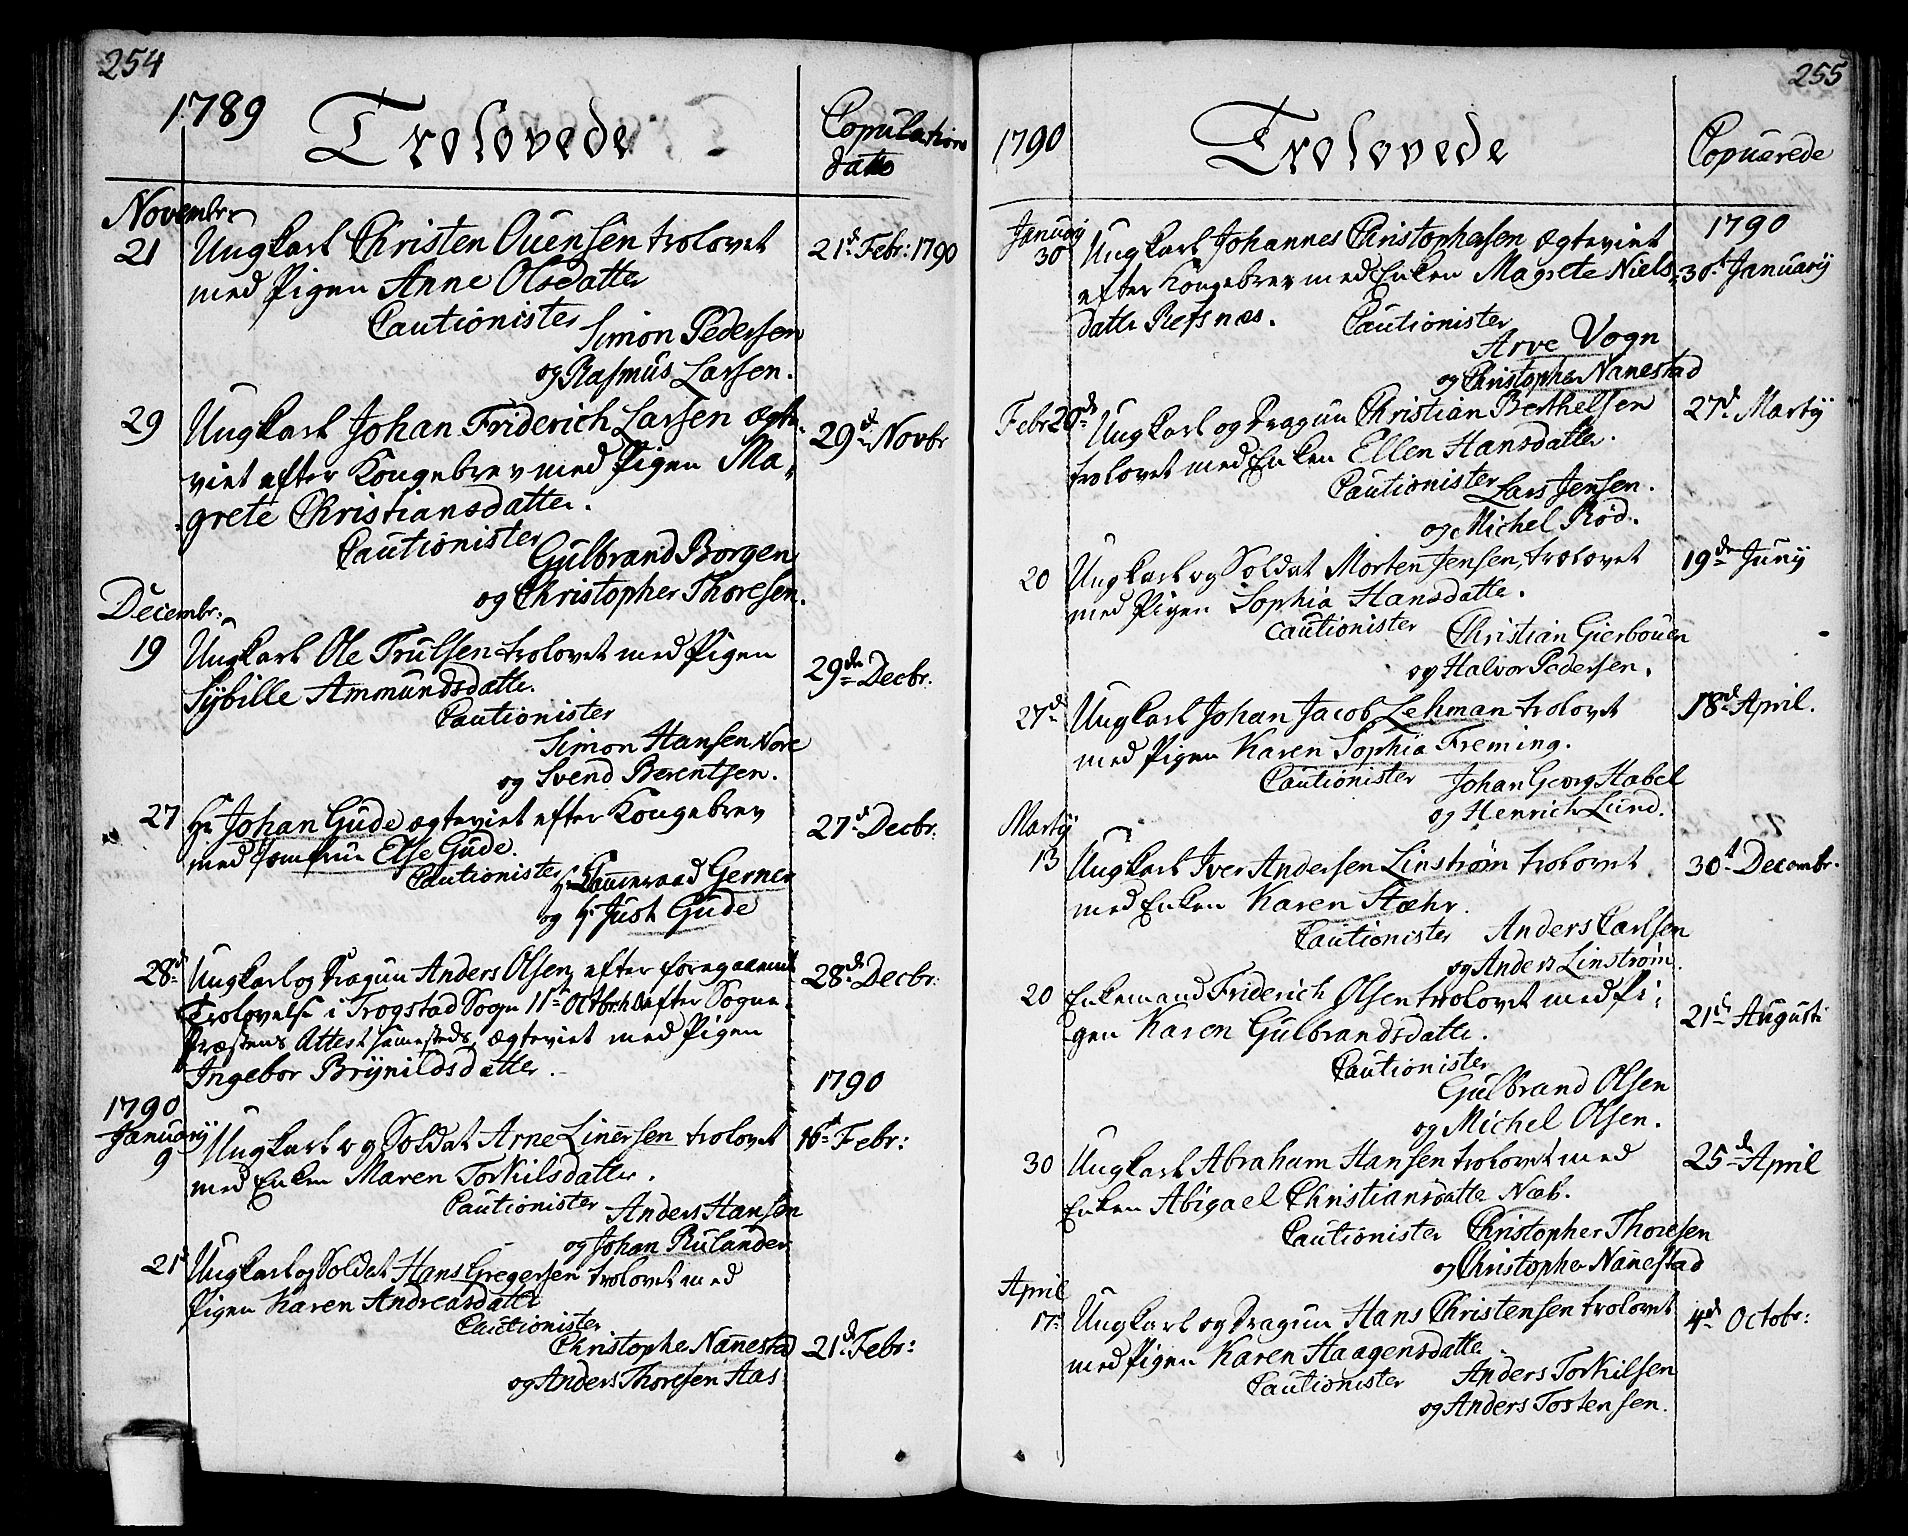 254
1789
Trolovede
Copulations
dato
November
21 Ungkarl Christen Ouensen trolovet 21d Febr: 1790
med Pigen Anne Olsdatter
Cautionister Simon Pedersen
og Rasmus Larsen.
29 Ungkarl Johan Friderich Larsen ægte- 29d Novbr
viet efter Kongebrev med Pigen Ma-
grete Christiansdatter.
Cautionister Gulbrand Borgen
og Christopher Thoresen.
Decembr:
19 Ungkarl Ole Trulsen trolovet med Pigen 29de Decbr.
Sybille Ammundsdatter.
Cautionister
Simon Hansen Nore
og Svend Berentsen.
27 Hr Johan Gude ægteviet efter Kongebrev 27d Decbr.
med Jomfrue Else Gude.
Cautionister Hr Gerner
og Hr Just Gude
28d Ungkarl og Dragun Anders Olsen, efter foregaaende 28d Decbr:
Trolovelse i Trogstad Sogn 11t Octbr. efter Sogne-
Præstens Attest sammesteds, ægteviet med Pigen
Ingebor Brynildsdatter.
1790 1790
January
9 Ungkarl og Soldat Arne Linersen trolovet 16t Febr:
med Enken Maren Torkilsdatter.
Cautionister Anders Hansen
og Johan Rulander
21t Ungkarl og Soldat Hans Gregersen trolovet med
Pigen Karen Andreasdatter
Cautionister
Christopher Nanestad 21d Febr:
og Anders Thoresen Aas
255
1790
Trolovede
Copuerede
January 1790
30 Ungkarl Johannes Christophersen ægteviet
efter Kongebrev med Enken Magrete Niels- 30t January
datter Refsnæs. Cautionister
Arve Vogn
og Christopher Nanestad
Febr 20de Ungkarl og Dragun Christian Berthelsen 27d Marty
trolovet med Enken Ellen Hansdatter.
Cautionister Lars Jensen.
og Michel Rød.
20 Ungkarl og Soldat Morten Jensen, trolovet 19de Juny
med Pigen Sophia Hansdatter.
Cautionister Christian Gierbouen
og Halvor Pedersen.
27d Ungkarl Johan Jacob Lehman trolovet 18d April.
med Pigen Karen Sophia Freming.
Cautionister Johan Georg Stabel
og Henrich Lund.
Marty
13 Ungkarl Iver Andersen Linstrøm trolovet 30t Decembr.
med Enken Karen Stæhr.
Cautionister Anders Carlsen
og Anders Linstrøm.
20 Enkemand Friderich Olsen trolovet med Pi- 21d Augusti
gen Karen Gulbrandsdatter.
Cautionister
Gulbrand Olsen
og Michel Olsen.
30 Ungkarl Abraham Hansen trolovet med 25d April
Enken Abigael Christiansdatter Næb.
Cautionister Christopher Thoresen
og Christopher Nanestad
April
17 Ungkarl og Dragun Hans Christensen trolovet 4d Octobr:
med Pigen Karen Haagensdatter.
Cautionister Anders Torkilsen
og Anders Tostensen.